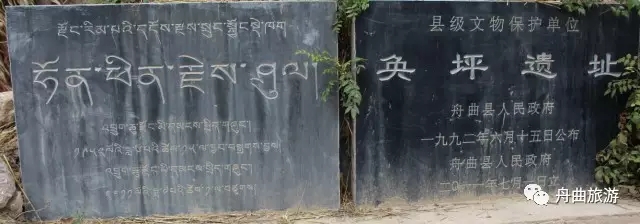 རྫོང་རིམ་པའི་དངོས་རྫས་སྲུང་སྐྱོང་སྡེ་ཁག
ཧོན་ཕིན་རྗེས་ཤུལ།
འབྲུག་ཆུ་རྫོང་མི་དམངས་སྲིད་གཞུང་།
འབྲུག་ཆུ་རྫོང་མི་དམངས་སྲིད་གཞུང་།
县级文物保护单位
奂坪遗址
舟曲县人民政府
一九九二年六月十五日公布
舟曲县人民政府
年七月 日立
舟曲旅游